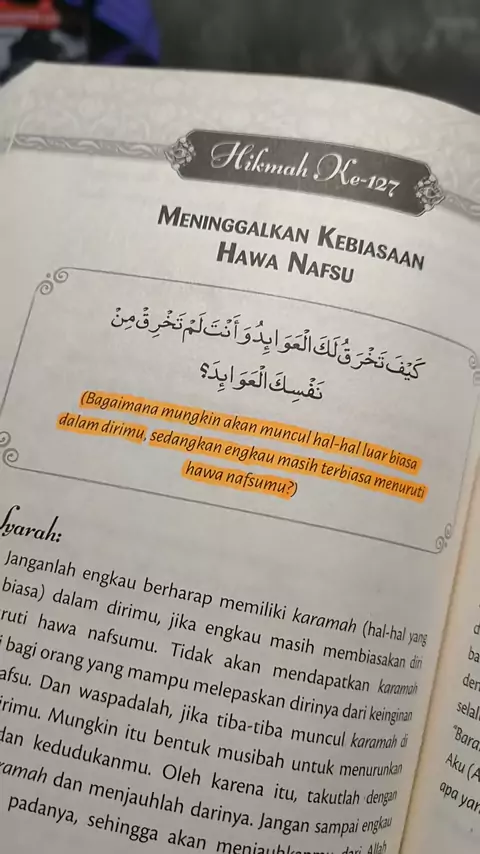 Hikmah Ke-127
MENINGGALKAN KEBIASAAN
HAWA NAFSU
كَيْفَ تَخْرَقُ لَكَ الْعَوَايِدُ وَأَنْتَ لَمْ تَخْرِقْ مِنْ
نَفْسِكَ الْعَوَايِدَ؟
(Bagaimana mungkin akan muncul hal-hal luar biasa
dalam dirimu, sedangkan engkau masih terbiasa menuruti
hawa nafsumu?)
Syarah:
Janganlah engkau berharap memiliki karamah (hal-hal yang
biasa) dalam dirimu, jika engkau masih membiasakan diri
ruti hawa nafsumu. Tidak akan mendapatkan karamah
i bagi orang yang mampu melepaskan dirinya dari keinginan
afsu. Dan waspadalah, jika tiba-tiba muncul karamah di
irimu. Mungkin itu bentuk musibah untuk menurunkan
dan kedudukanmu. Oleh karena itu, takutlah dengan
ramah dan menjauhlah darinya. Jangan sampai engkau
padanya, sehingga akan menjauhkanmu dari Allah
d
ba
den
selal
"Bara
Aku (A
apa yan